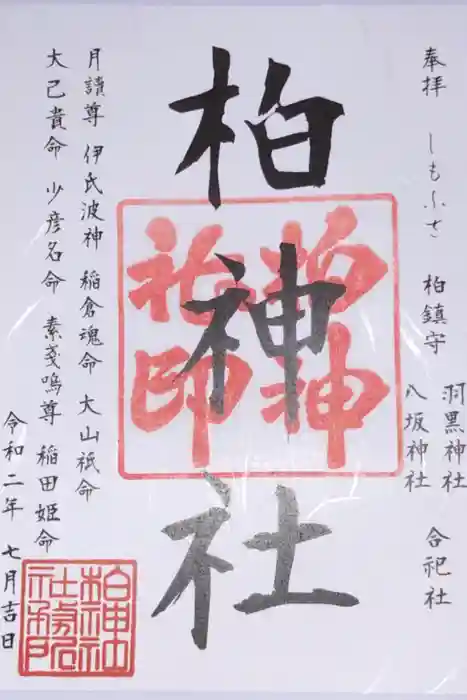 奉拝 しもふさ 柏鎮守
羽黒神社
八坂神社
合祀社
柏神社
柏神社印
月讀尊 伊氏波神 稲倉魂命 大山祇命
大己貴命 少彦名命 素戔嗚尊 稲田姫命
令和二年 七月吉日
柏神社社務所印